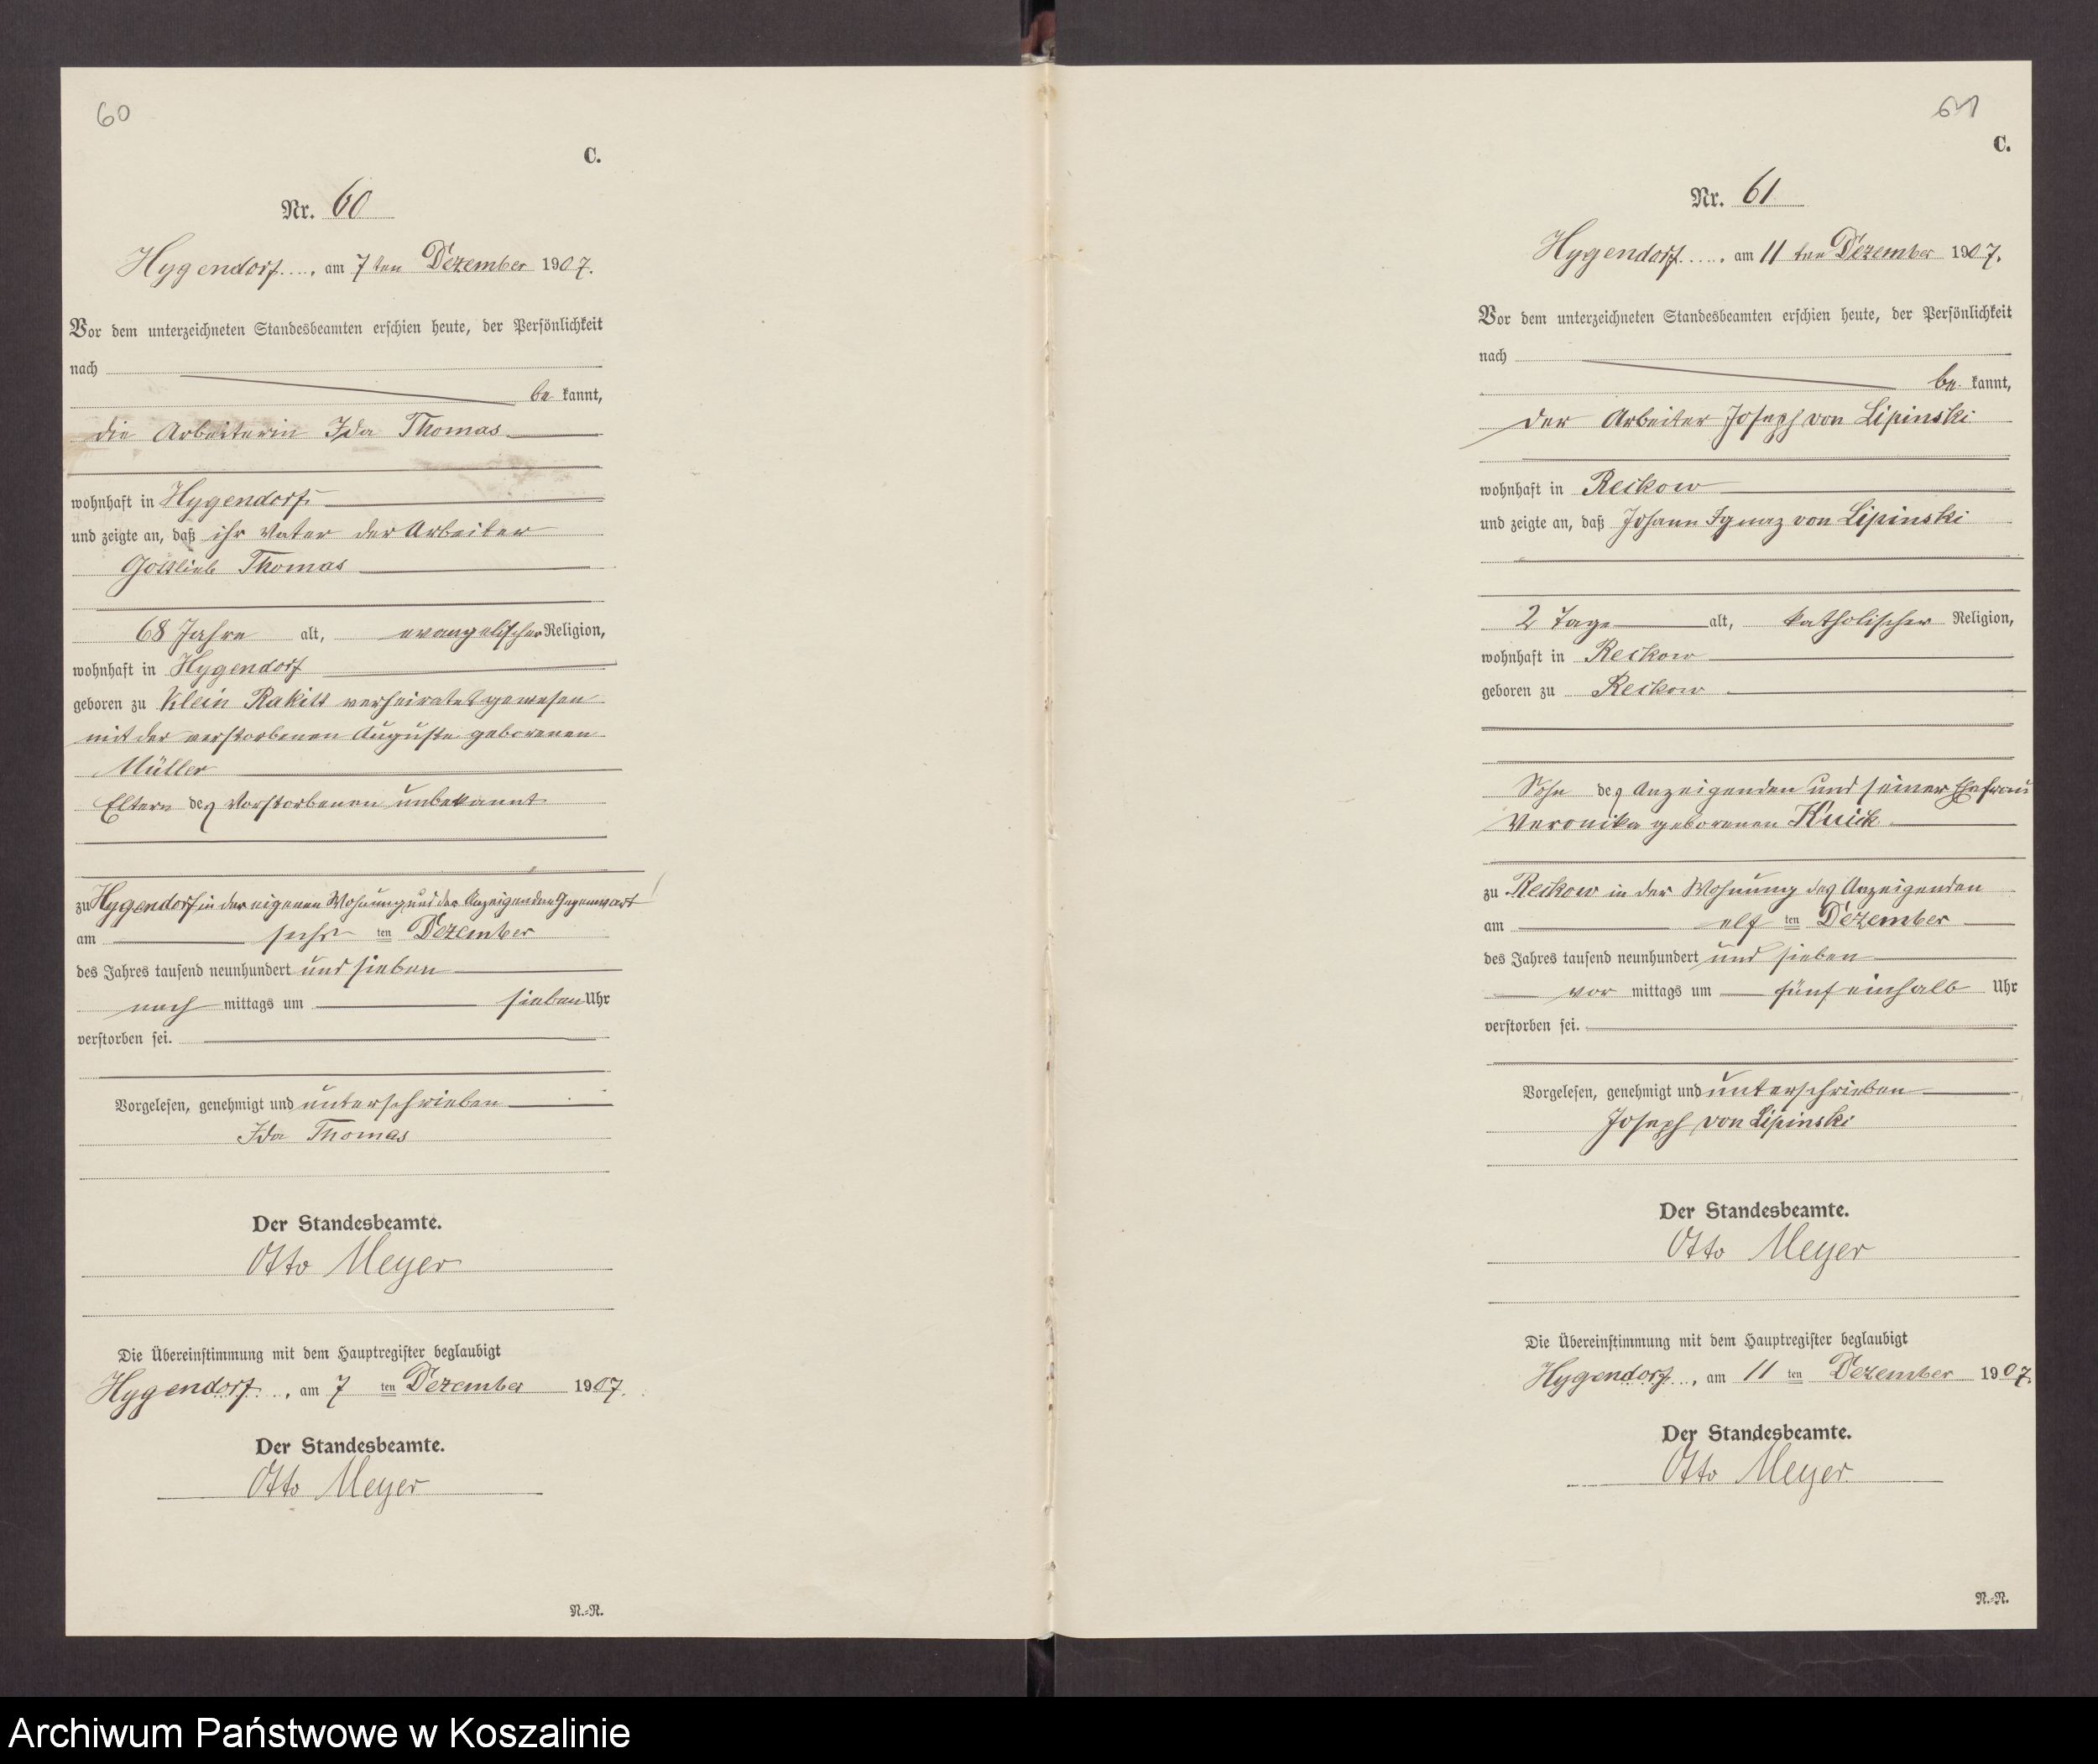 60
C.
Nr. 60
Hygendorf, am 7ten Dezember 1907.
Vor dem unterzeichneten Standesbeamten erschien heute, der Persönlichkeit
nach
be kannt,
die Arbeiterin Ida Thomas
wohnhaft in Hygendorf
und zeigte an, daß ihr Vater der Arbeiter
Gottlieb Thomas
68 Jahre alt, evangelischer Religion,
wohnhaft in Hygendorf
geboren zu Klein Rakitt verheiratet gewesen
mit der verstorbenen Auguste geborenen
Müller
Eltern des Verstorbenen unbekannt
zu Hygendorf in der eigenen Wohnung und der Anzeigenden Gegenwart
am sechs ten Dezember
des Jahres tausend neunhundert und sieben
nach mittags um sieben Uhr
verstorben sei.
Vorgelesen, genehmigt und unterschrieben
Ida Thomas
Der Standesbeamte.
Otto Meyer
Die Übereinstimmung mit dem Hauptregister beglaubigt
Hygendorf, am 7 ten Dezember 1907.
Der Standesbeamte.
Otto Meyer
N.-N.
61
C.
Nr. 61
Hygendorf, am 11 ten Dezember 1907.
Vor dem unterzeichneten Standesbeamten erschien heute, der Persönlichkeit
nach
be kannt,
der Arbeiter Joseph von Lipinski
wohnhaft in Reckow
und zeigte an, daß Johann Ignaz von Lipinski
2 Tage alt, katholischer Religion,
wohnhaft in Reckow
geboren zu Reckow
Sohn des Anzeigenden und seiner Ehefrau
Veronika geborenen
zu Reckow in der Wohnung des Anzeigenden
am elf ten Dezember
des Jahres tausend neunhundert und sieben
vor mittags um fünf einhalb Uhr
verstorben sei.
Vorgelesen, genehmigt und unterschrieben
Joseph von Lipinski
Der Standesbeamte.
Otto Meyer
Die Übereinstimmung mit dem Hauptregister beglaubigt
Hygendorf, am 11 ten Dezember 1907.
Der Standesbeamte.
Otto Meyer
N.-N.
Archiwum Państwowe w Koszalinie